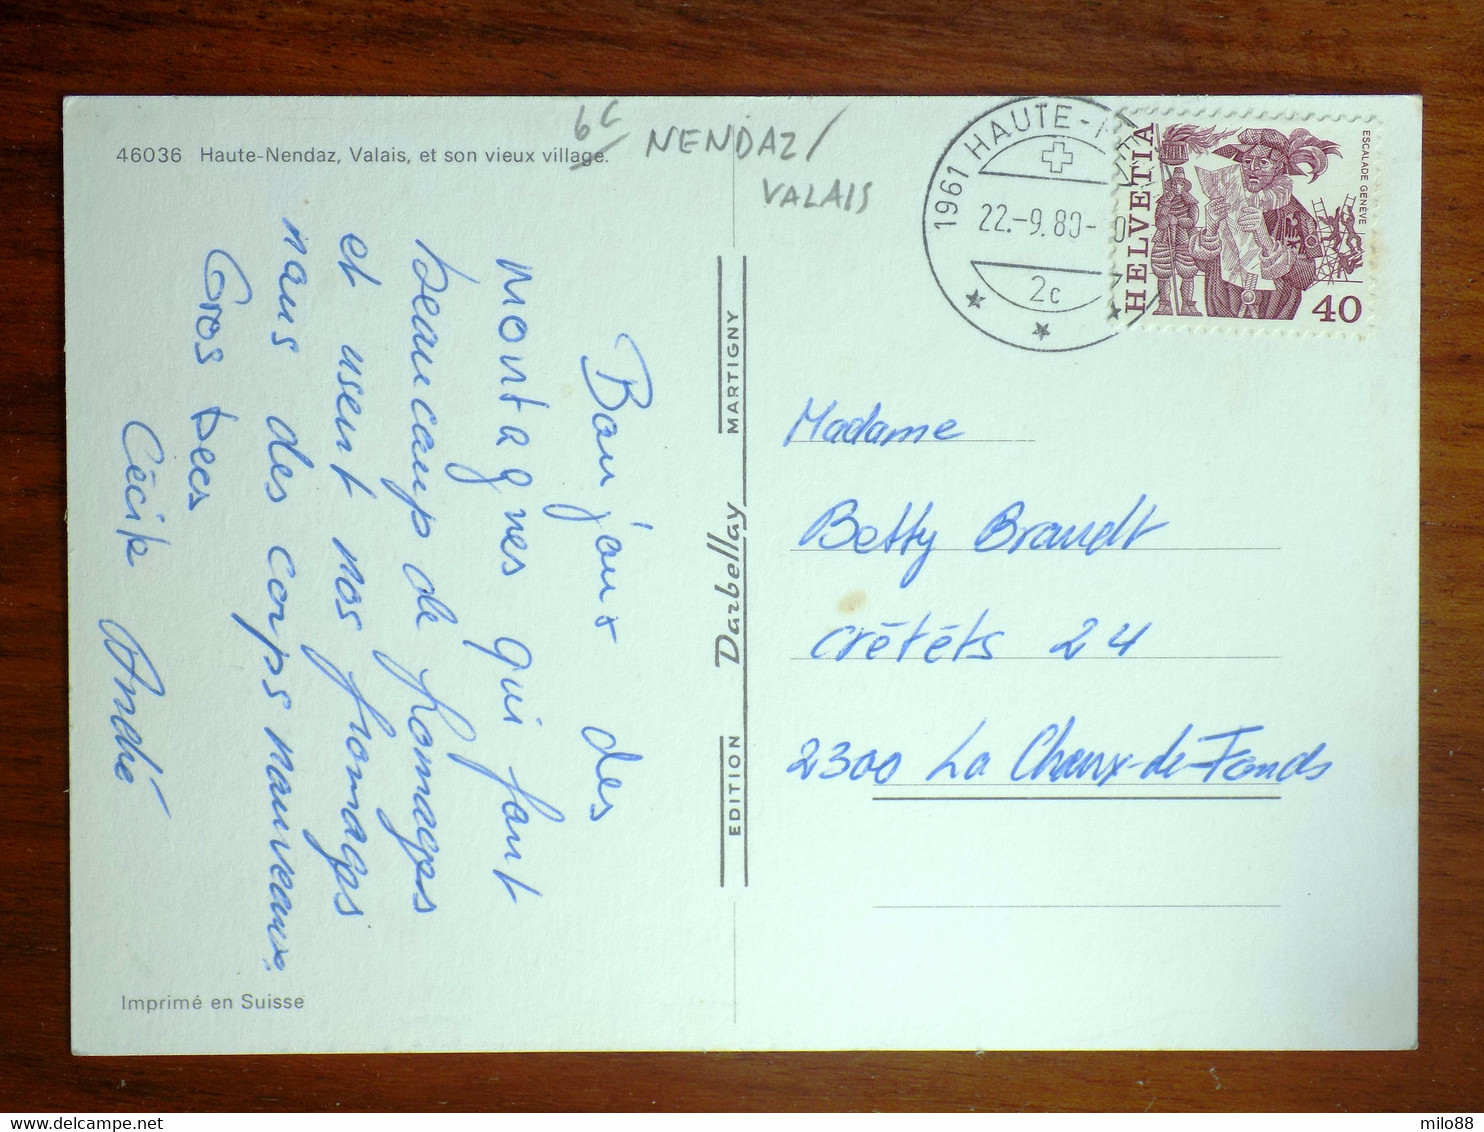 46036 Haute-Nendaz, Valais, et son vieux village.
6c
NENDAZ/
VALAIS
Bonjour des
montagnes qui font
beaucoup de fromages
et usent nos fromages
nous des corps nouveaux.
Gros becs
Cécile André
Imprimé en Suisse
EDITION Darbellay MARTIGNY
1961 HAUTE-
22.-9.80-
2c
HELVETIA
ESCALADE GENÈVE
40
Madame
Betty Brandt
Crétêts 24
2300 La Chaux-de-Fonds
milo88